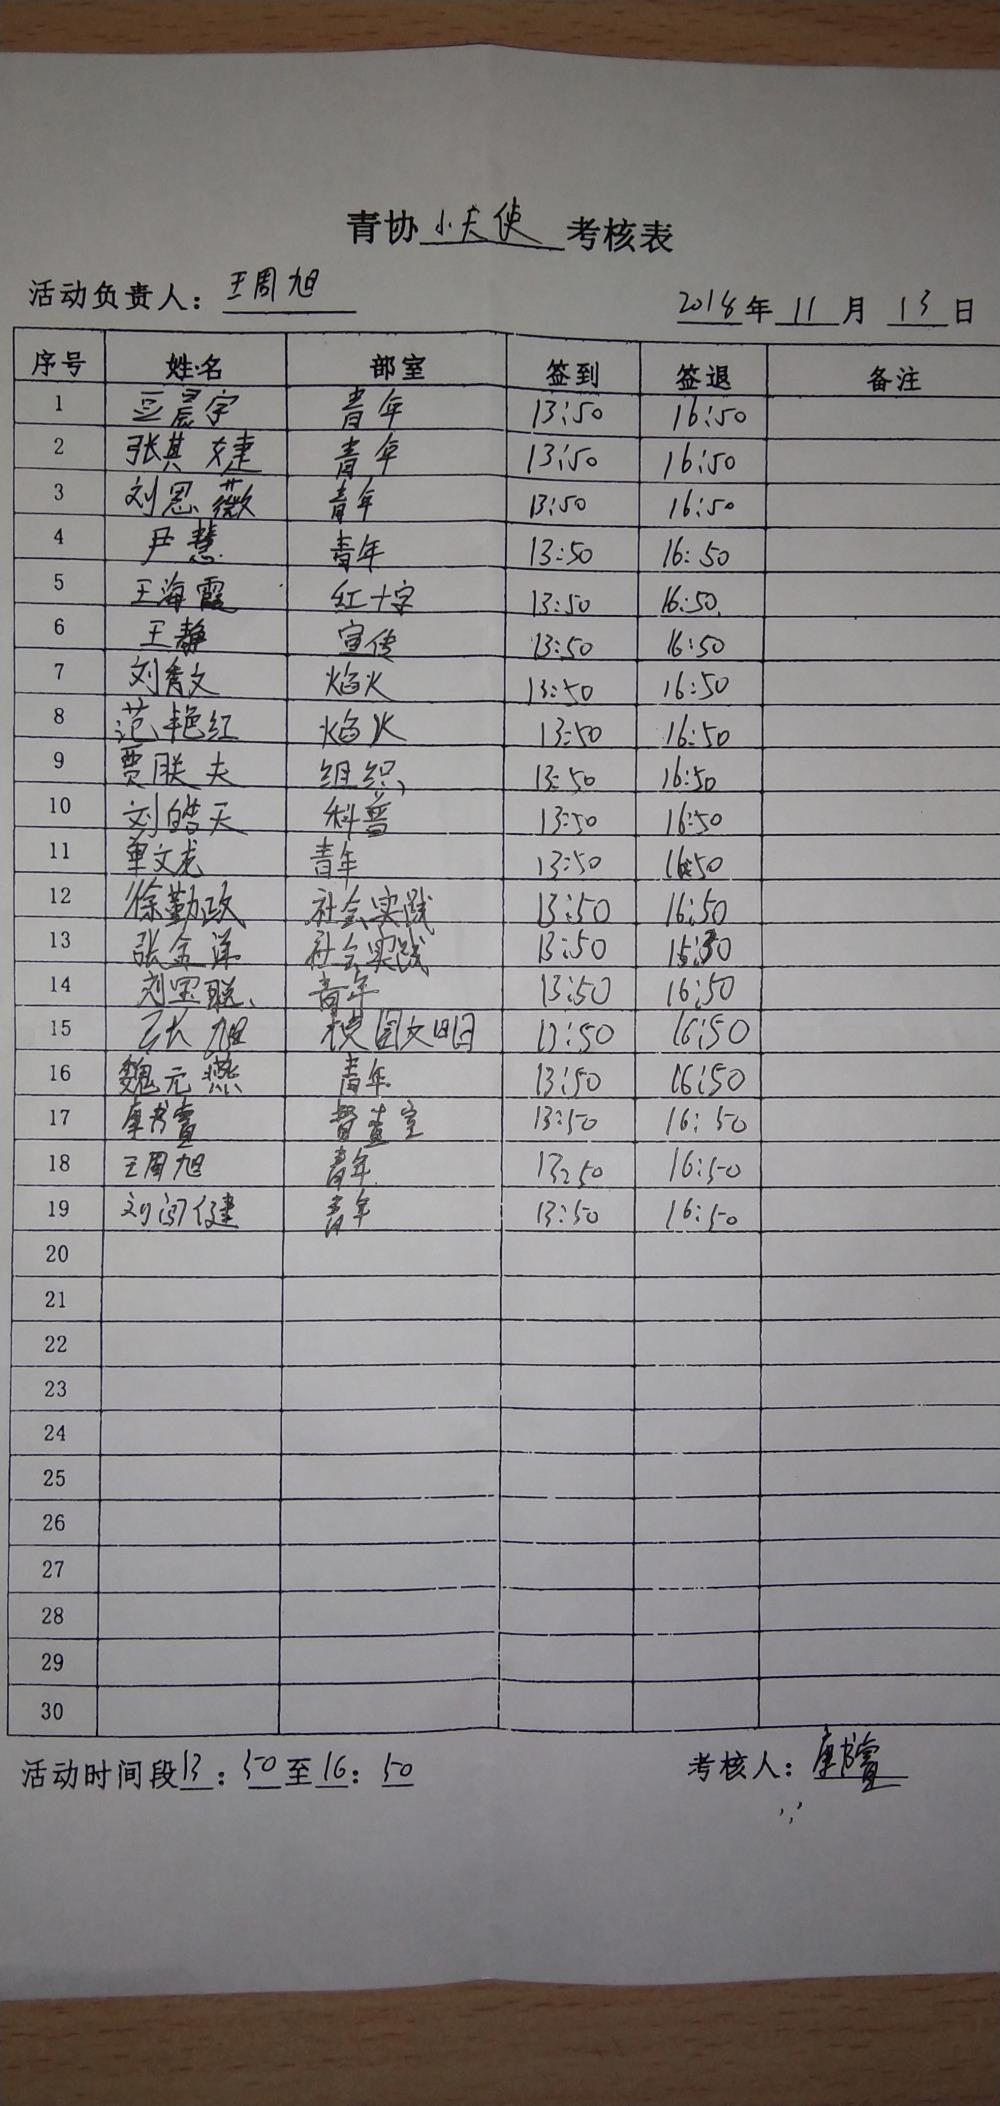 青协小天使考核表
活动负责人：王周旭 2018年11月13日
序号 姓名 部室 签到 签退 备注
1 豆晨宇 青年 13:50 16:50
2 张其婕 青年 13:50 16:50
3 刘恩薇 青年 13:50 16:50
4 尹慧 青年 13:50 16:50
5 王海霞 红十字 13:50 16:50
6 王静 宣传 13:50 16:50
7 刘秀文 焰火 13:50 16:50
8 范艳红 焰火 13:50 16:50
9 贾朕夫 组织 13:50 16:50
10 刘皓天 科普 13:50 16:50
11 单文龙 青年 13:50 16:50
12 徐勤政 社会实践 13:50 16:50
13 张金洋 社会实践 13:50
14 刘罡聪 青年 13:50 16:50
15 张旭 校园文明 13:50 16:50
16 魏元燕 青年 13:50 16:50
17 督查室 13:50 16:50
18 王周旭 青年 13:50 16:50
19 刘闯健 青年 13:50 16:50
20
21
22
23
24
25
26
27
28
29
30
活动时间段13：50至16：50 考核人：